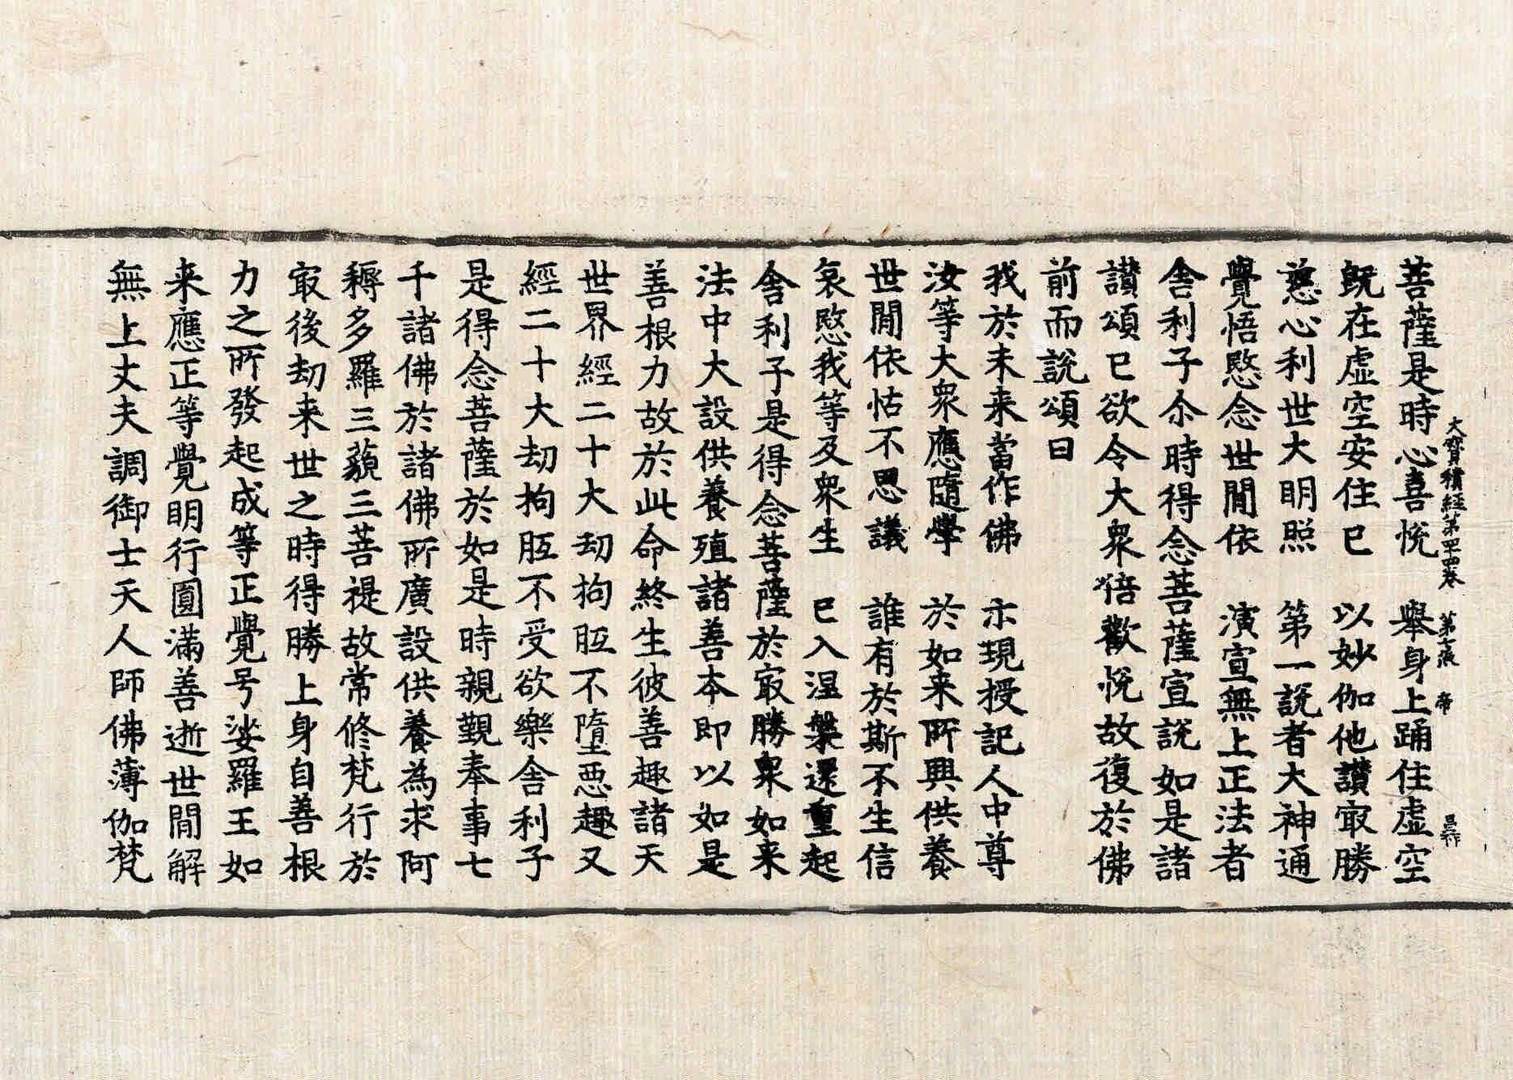 大寳積經第四四卷 第六張 帝
菩薩是時心喜悅 舉身上踊住虛空
旣在虛空安住已 以妙伽他讚㝡勝
慈心利世大明照 第一說者大神通
覺悟愍念世間依 演宣無上正法者
舍利子尒時得念菩薩宣說如是諸
讃頌已欲令大衆倍歡悅故復於佛
前而說頌曰
我於未来當作佛 示現授記人中尊
汝等大衆應隨學 於如来所興供養
世間依怙不思議 誰有於斯不生信
哀愍我等及衆生 已入涅槃還重起
舍利子是得念菩薩於㝡勝衆如来
法中大設供養殖諸善夲即以如是
善根力故於此命終生彼善趣諸天
世界經二十大刧拘胝不墮惡趣又
經二十大刧拘胝不受欲樂舍利子
是得念菩薩於如是時親覲奉事七
千諸佛於諸佛所廣設供養為求阿
耨多羅三藐三菩提故常修梵行於
㝡後劫来世之時得勝上身自善根
力之所發起成等正覺号娑羅王如
来應正等覺明行圓滿善逝世間解
無上丈夫調御士天人師佛薄伽梵